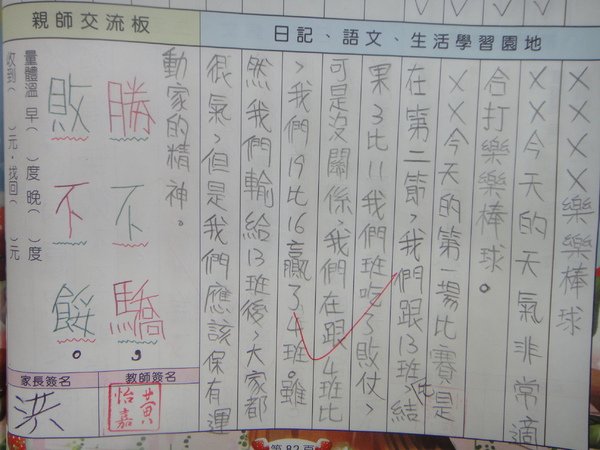 親師交流板
日記、語文、生活學習園地
××××樂樂棒球
××今天的天氣非常適
合打樂樂棒球。
××今天的第一場比賽是
在第二節,我們跟13班比,結
果3比11我們班吃了敗仗,
可是沒關係,我們在跟4班比
,我們19比16贏了4班。雖
然我們輸給13班後,大家都
很氣,但是我們應該保有運
動家的精神。
勝不驕,
敗不餒。
量體溫 早( )度 晚( )度
收到( )元,找回( )元
教師簽名
黃怡嘉
家長簽名
洪
第 82 頁